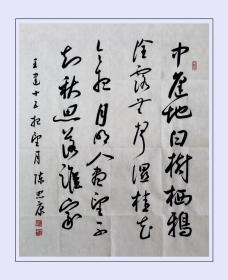 中庭地白樹栖鴉
冷露无声湿桂花
今夜月明人尽望不
知秋思落誰家
王建十五夜望月 陈思康